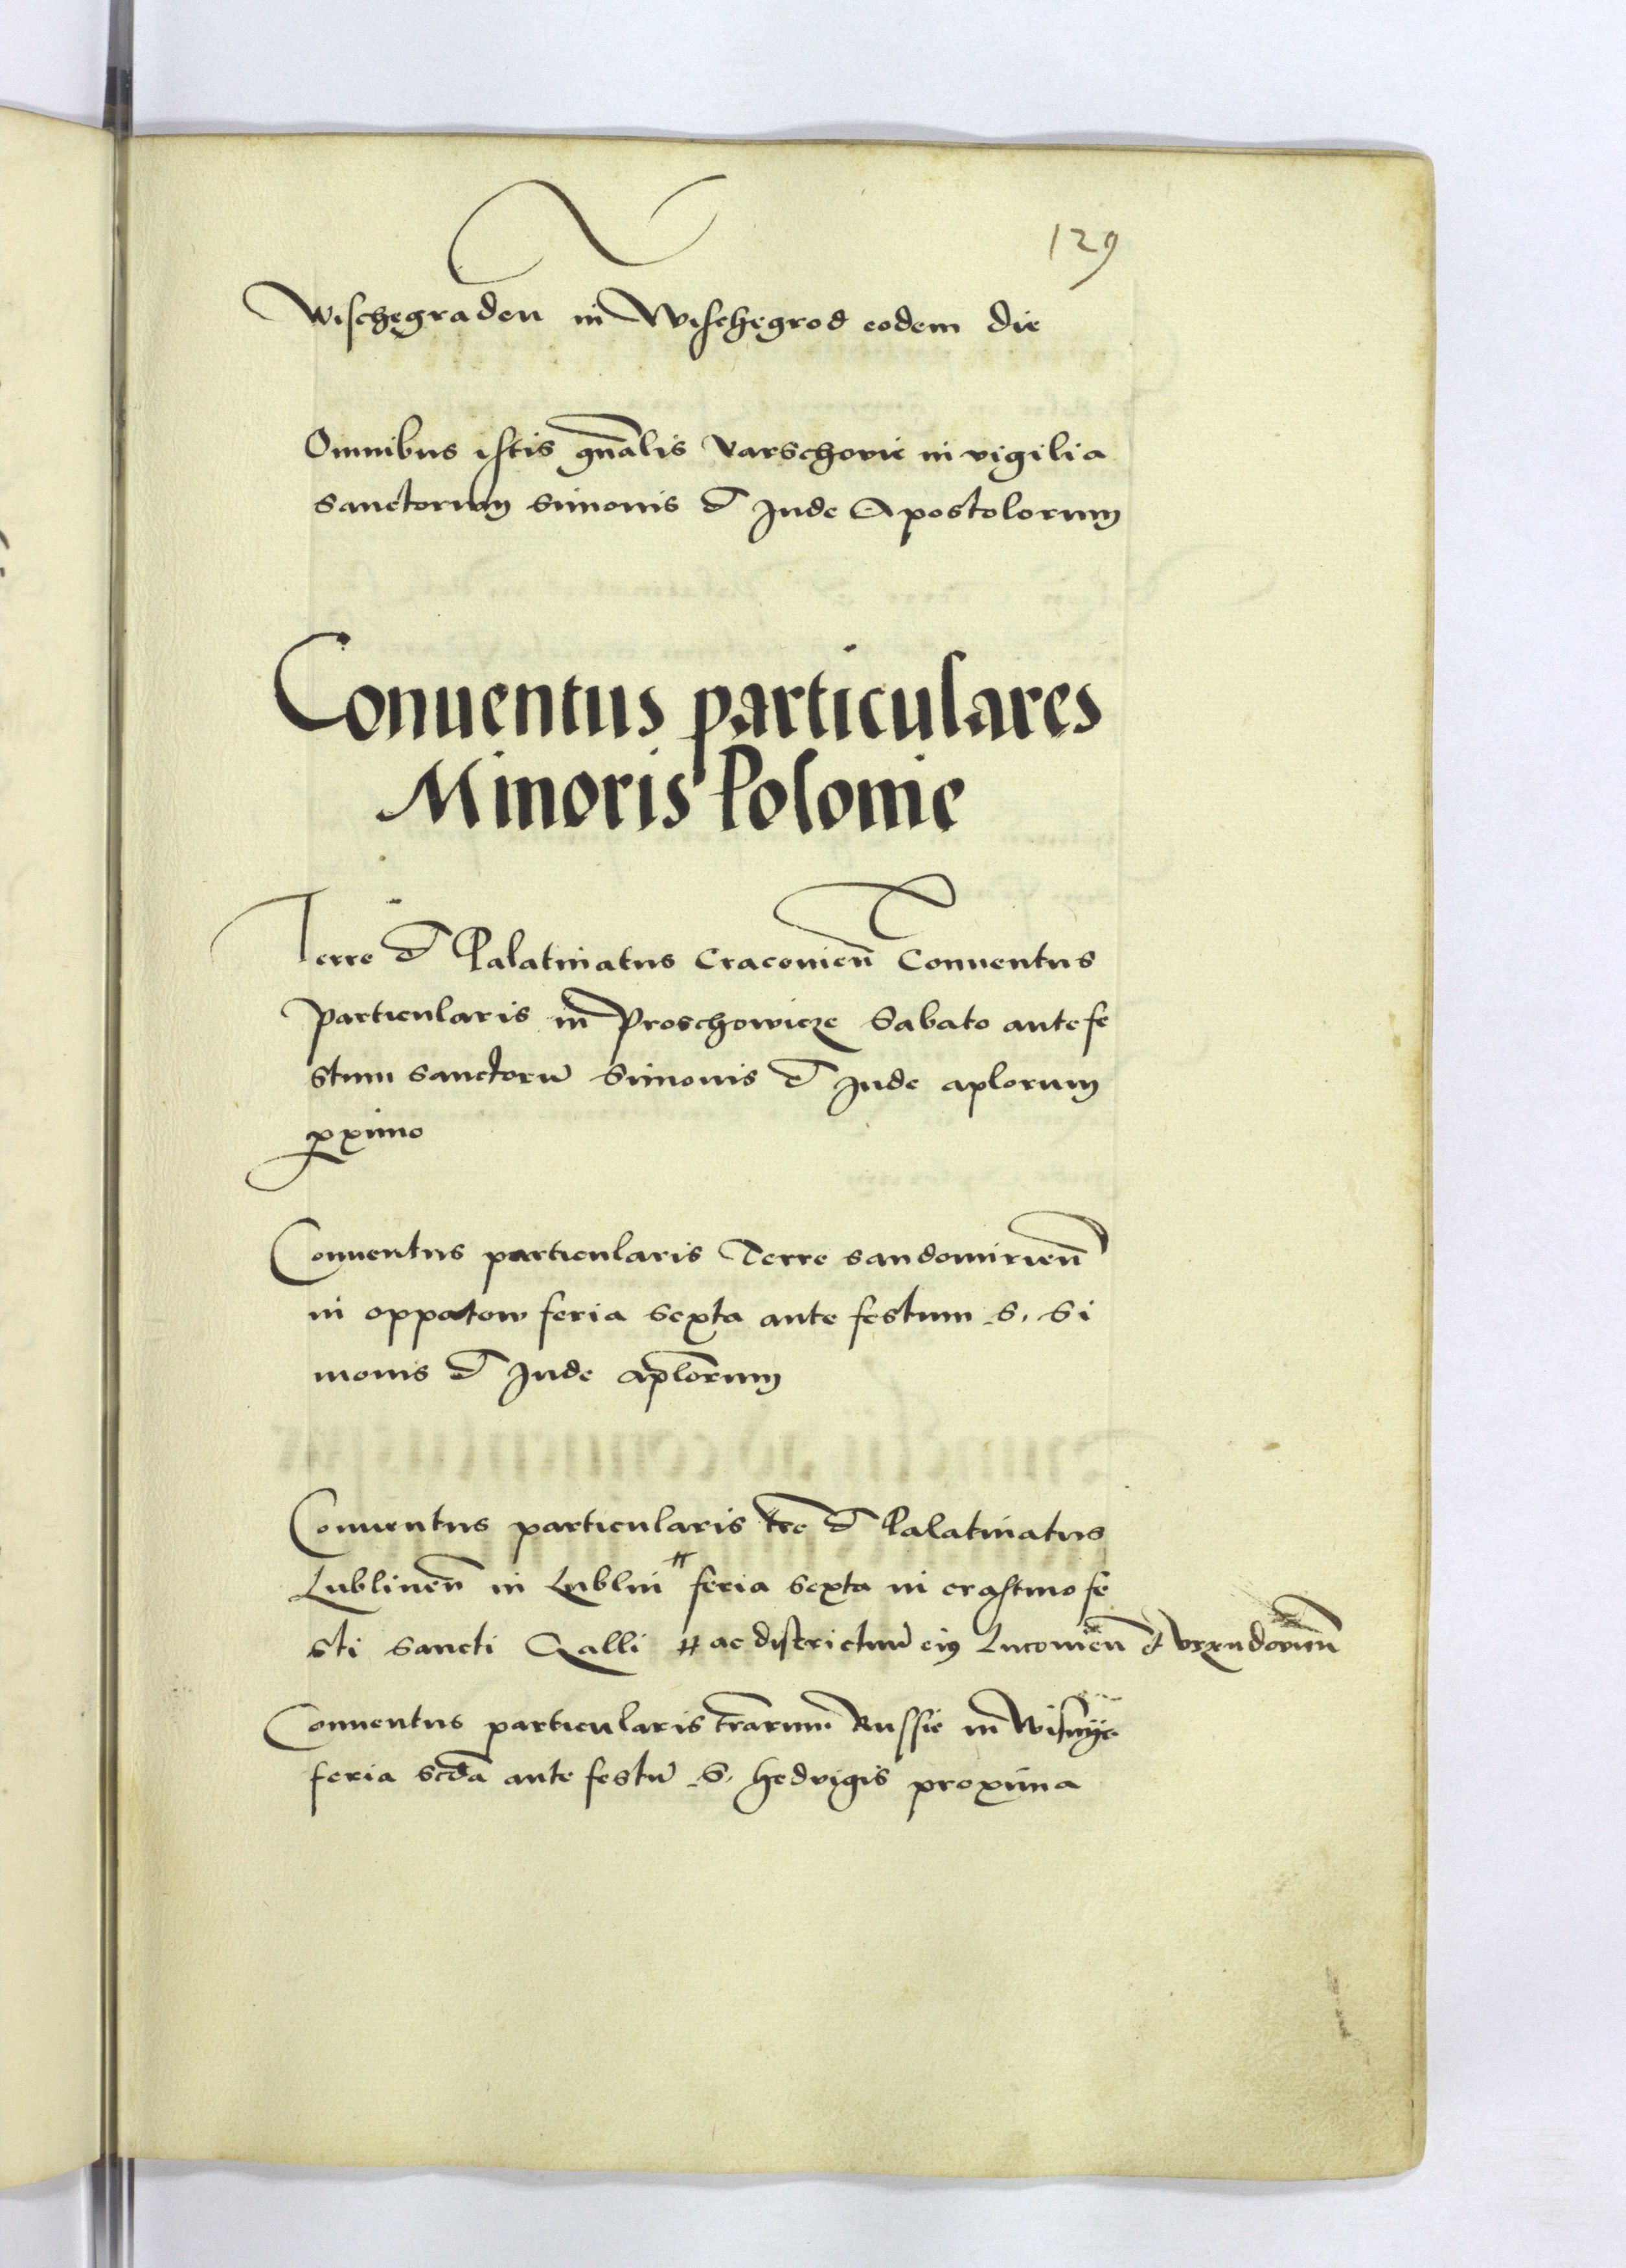 129
Wischegraden in Wischegrod eodem die
Omnibus istis gnalis Varschovie in vigilia
Sanctorum Simonis et Jude Apostolorum
Conuentus particulares
Minoris Polonie
Terre et Palatinatus Cracovien Conuentus
particularis in Proschowicze Sabato ante fe
stum sanctoru Simonis et Jude aplorum
pximo
Conuentus particularis Terre sandomirien
in oppatow feria sexta ante festum S. Si
monis et Jude aplorum
Conuentus particularis tre et Palatinatus
Lublinen in Lublin # feria sexta in crastino fe
sti sancti Galli # ac districtuu eius Lucovien et Vrzendovien
Conuentus particularis trarum Russie in Wisnye
feria scda ante festu S. Hedvigis proxima